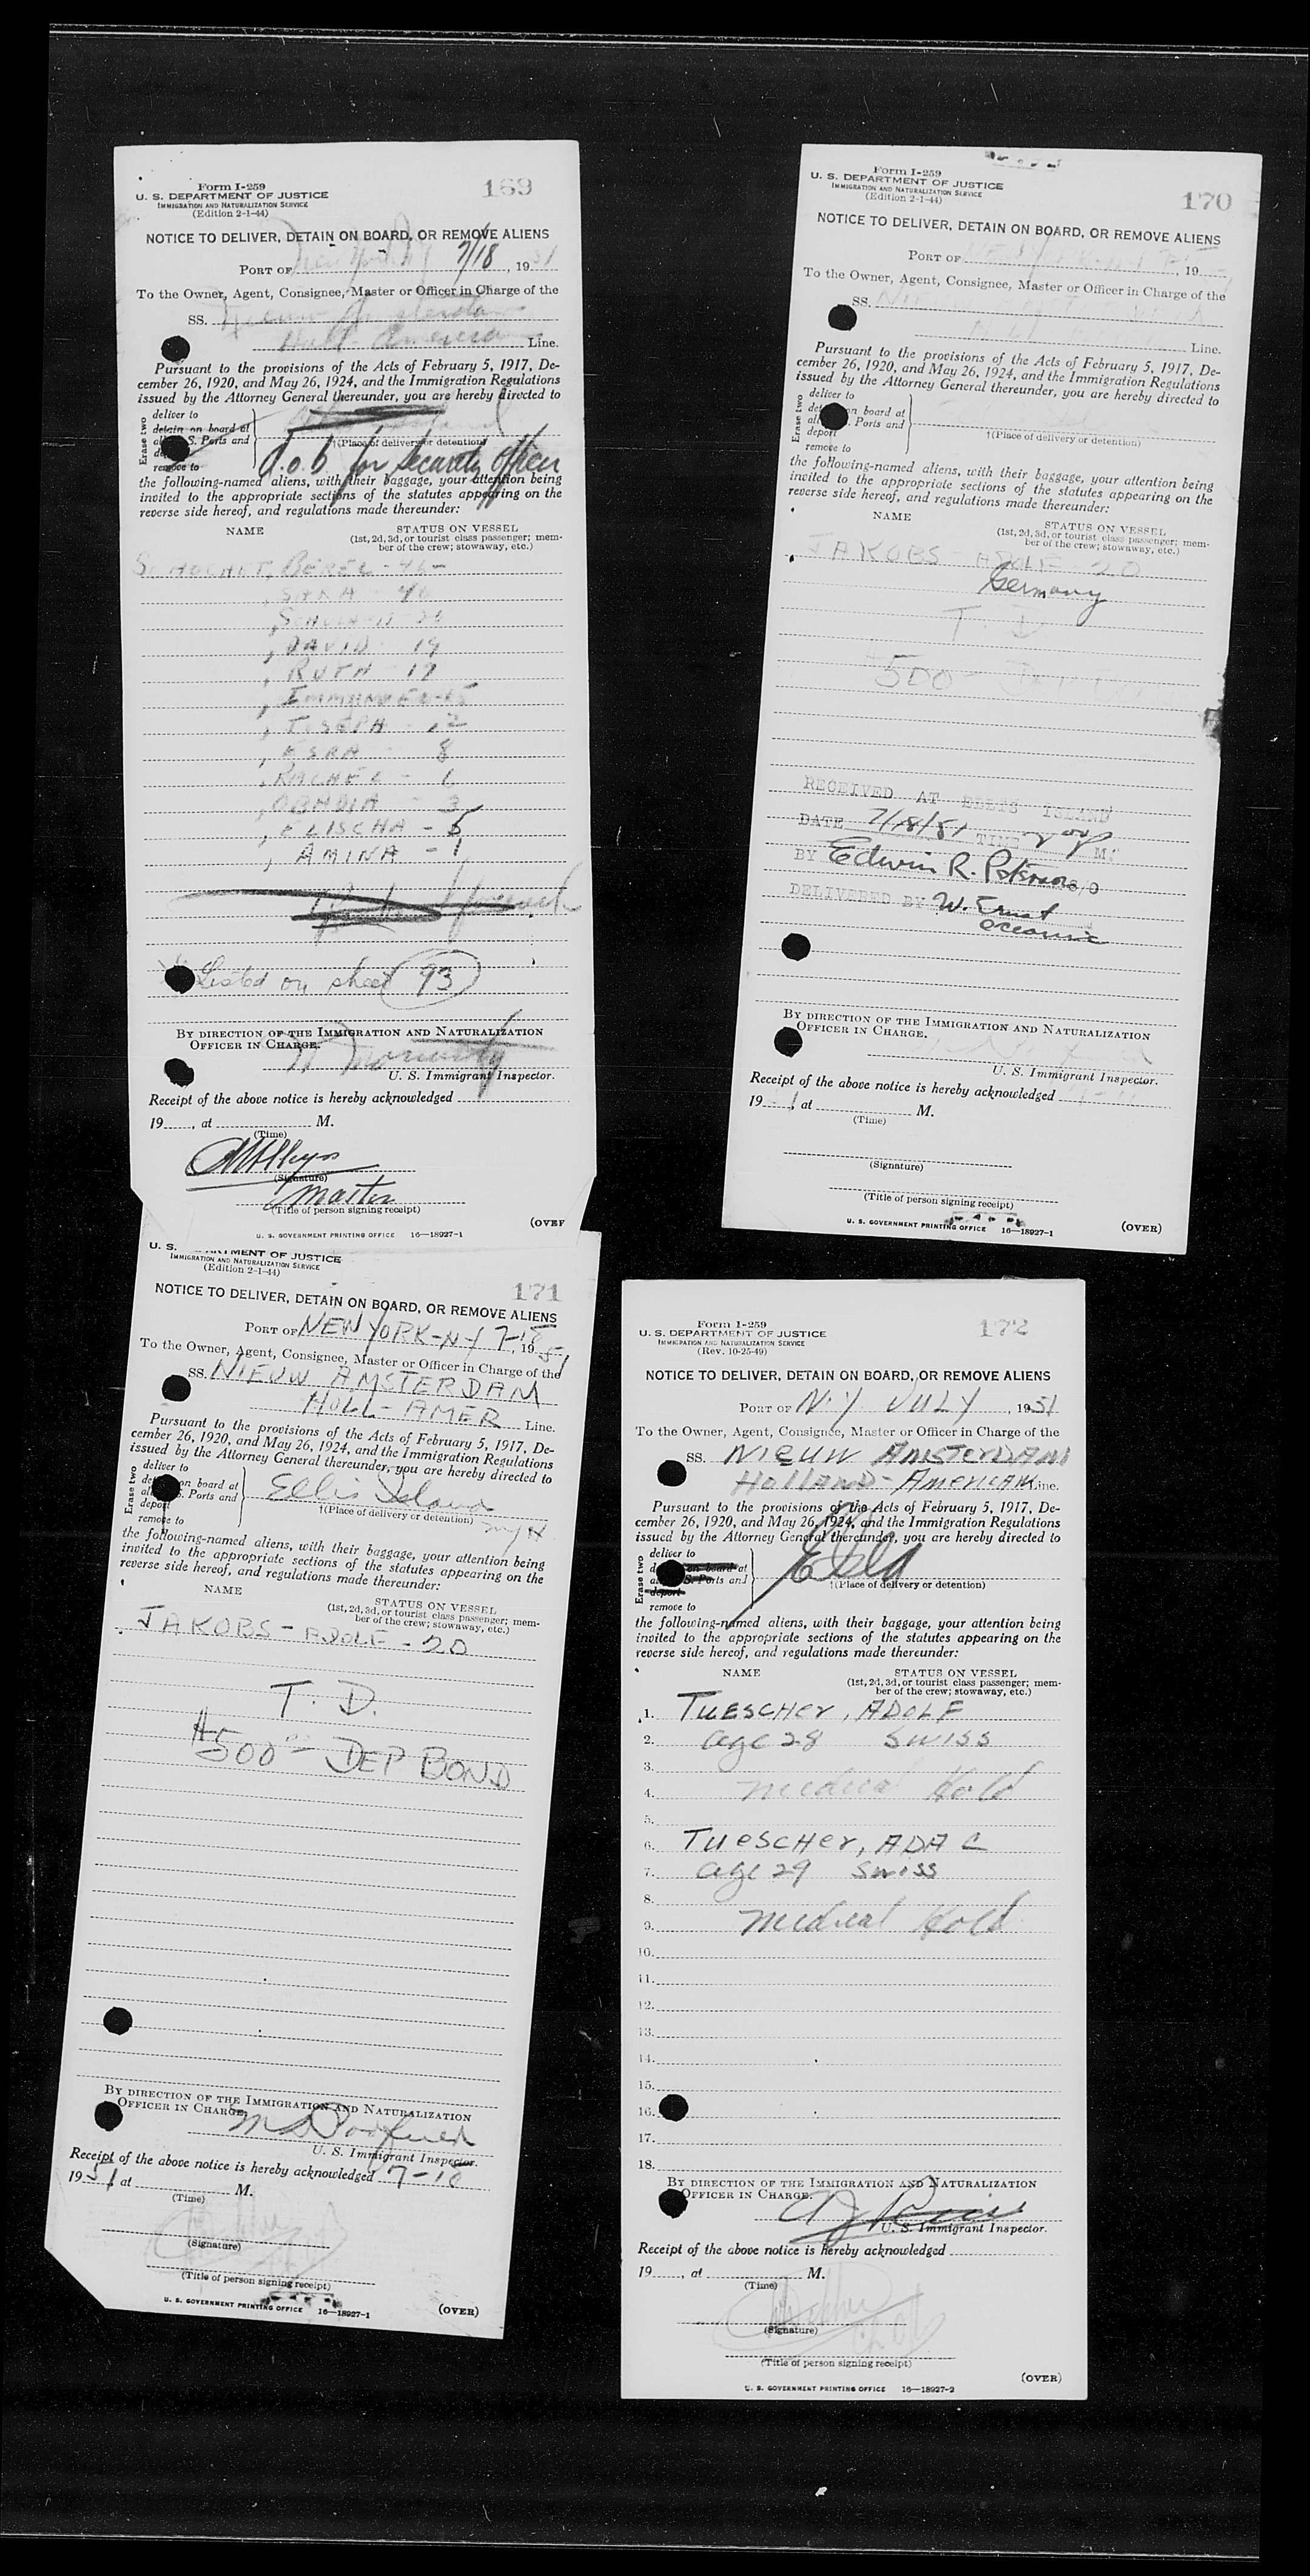 Form I-259
169
U. S. DEPARTMENT OF JUSTICE
IMMIGRATION AND NATURALIZATION SERVICE
(Edition 2-1-44)
NOTICE TO DELIVER, DETAIN ON BOARD, OR REMOVE ALIENS
PORT OF 7/18, 1951
To the Owner, Agent, Consignee, Master or Officer in Charge of the
SS. Nieuw Amsterdam
Holl-America Line.
Pursuant to the provisions of the Acts of February 5, 1917, De-
cember 26, 1920, and May 26, 1924, and the Immigration Regulations
issued by the Attorney General thereunder, you are hereby directed to
Erase two
deliver to
detain on board at
S. Ports and
remove to
†(Place of delivery or detention)
d.o.b. for Security officer
the following-named aliens, with their baggage, your attention being
invited to the appropriate sections of the statutes appearing on the
reverse side hereof, and regulations made thereunder:
NAME
STATUS ON VESSEL
(1st, 2d, 3d, or tourist class passenger; mem-
ber of the crew; stowaway, etc.)
BEREL - 46 -
, SARA 46
, DAVID - 19
, RUTH - 17
, IMMANUEL
, JOSEPH - 12
, ESRA - 8
, RACHEL - 6
, OBADIA - 3
, ELISCHA - 5
, AMINA - 1
Listed on sheet 93
BY DIRECTION OF THE IMMIGRATION AND NATURALIZATION
OFFICER IN CHARGE.
U. S. Immigrant Inspector.
Receipt of the above notice is hereby acknowledged
19 , at M.
(Time)
(Signature)
Master
(Title of person signing receipt)
(OVER
U. S. GOVERNMENT PRINTING OFFICE 16—18927-1
Form I-259
170
U. S. DEPARTMENT OF JUSTICE
IMMIGRATION AND NATURALIZATION SERVICE
(Edition 2-1-44)
NOTICE TO DELIVER, DETAIN ON BOARD, OR REMOVE ALIENS
PORT OF , 19
To the Owner, Agent, Consignee, Master or Officer in Charge of the
SS.
Line.
Pursuant to the provisions of the Acts of February 5, 1917, De-
cember 26, 1920, and May 26, 1924, and the Immigration Regulations
issued by the Attorney General thereunder, you are hereby directed to
Erase two
deliver to
on board at
Ports and
deport
remove to
†(Place of delivery or detention)
the following-named aliens, with their baggage, your attention being
invited to the appropriate sections of the statutes appearing on the
reverse side hereof, and regulations made thereunder:
NAME
STATUS ON VESSEL
(1st, 2d, 3d, or tourist class passenger; mem-
ber of the crew; stowaway, etc.)
JAKOBS - ADOLF - 20
Germany
T. D
500 -
RECEIVED AT ELLIS ISLAND
DATE 7/18/51 TIME M.
BY Edwin R. Peterson S/O
DELIVERED BY W. Ernst
Oceanic
BY DIRECTION OF THE IMMIGRATION AND NATURALIZATION
OFFICER IN CHARGE.
U. S. Immigrant Inspector.
Receipt of the above notice is hereby acknowledged
19 , at M.
(Time)
(Signature)
(Title of person signing receipt)
U. S. GOVERNMENT PRINTING OFFICE 16—18927-1
(OVER)
171
U. S. MENT OF JUSTICE
IMMIGRATION AND NATURALIZATION SERVICE
(Edition 2-1-44)
NOTICE TO DELIVER, DETAIN ON BOARD, OR REMOVE ALIENS
PORT OF NEW YORK-N-Y 7-18, 1951
To the Owner, Agent, Consignee, Master or Officer in Charge of the
SS. NIEUW AMSTERDAM
HOLL-AMER Line.
Pursuant to the provisions of the Acts of February 5, 1917, De-
cember 26, 1920, and May 26, 1924, and the Immigration Regulations
issued by the Attorney General thereunder, you are hereby directed to
Erase two
deliver to
on board at
S. Ports and
deport
remove to
Ellis Island
†(Place of delivery or detention)
the following-named aliens, with their baggage, your attention being
invited to the appropriate sections of the statutes appearing on the
reverse side hereof, and regulations made thereunder:
NAME
STATUS ON VESSEL
(1st, 2d, 3d, or tourist class passenger; mem-
ber of the crew; stowaway, etc.)
JAKOBS - ADOLF - 20
T. D.
$500 - DEP BOND
BY DIRECTION OF THE IMMIGRATION AND NATURALIZATION
OFFICER IN CHARGE.
U. S. Immigrant Inspector.
Receipt of the above notice is hereby acknowledged 7-18
1951 at M.
(Time)
(Signature)
(Title of person signing receipt)
U. S. GOVERNMENT PRINTING OFFICE 16—18927-1
(OVER)
Form I-259
172
U. S. DEPARTMENT OF JUSTICE
IMMIGRATION AND NATURALIZATION SERVICE
(Rev. 10-25-49)
NOTICE TO DELIVER, DETAIN ON BOARD, OR REMOVE ALIENS
PORT OF N.Y. JULY , 1951
To the Owner, Agent, Consignee, Master or Officer in Charge of the
SS. NIEUW AMSTERDAM
HOLLAND-AMERICAN Line.
Pursuant to the provisions of the Acts of February 5, 1917, De-
cember 26, 1920, and May 26, 1924, and the Immigration Regulations
issued by the Attorney General thereunder, you are hereby directed to
Erase two
deliver to
on board at
S. Ports and
deport
remove to
†(Place of delivery or detention)
the following-named aliens, with their baggage, your attention being
invited to the appropriate sections of the statutes appearing on the
reverse side hereof, and regulations made thereunder:
NAME
STATUS ON VESSEL
(1st, 2d, 3d, or tourist class passenger; mem-
ber of the crew; stowaway, etc.)
1. TUESCHER, ADOLF
2. age 28 SWISS
3.
4. medical Hold
5.
6. TUESCHER, ADA C
7. age 29 SWISS
8.
9. medical Hold
10.
11.
12.
13.
14.
15.
16.
17.
18.
BY DIRECTION OF THE IMMIGRATION AND NATURALIZATION
OFFICER IN CHARGE.
U. S. Immigrant Inspector.
Receipt of the above notice is hereby acknowledged
19 , at M.
(Time)
(Signature)
(Title of person signing receipt)
(OVER)
U. S. GOVERNMENT PRINTING OFFICE 16—18927-2